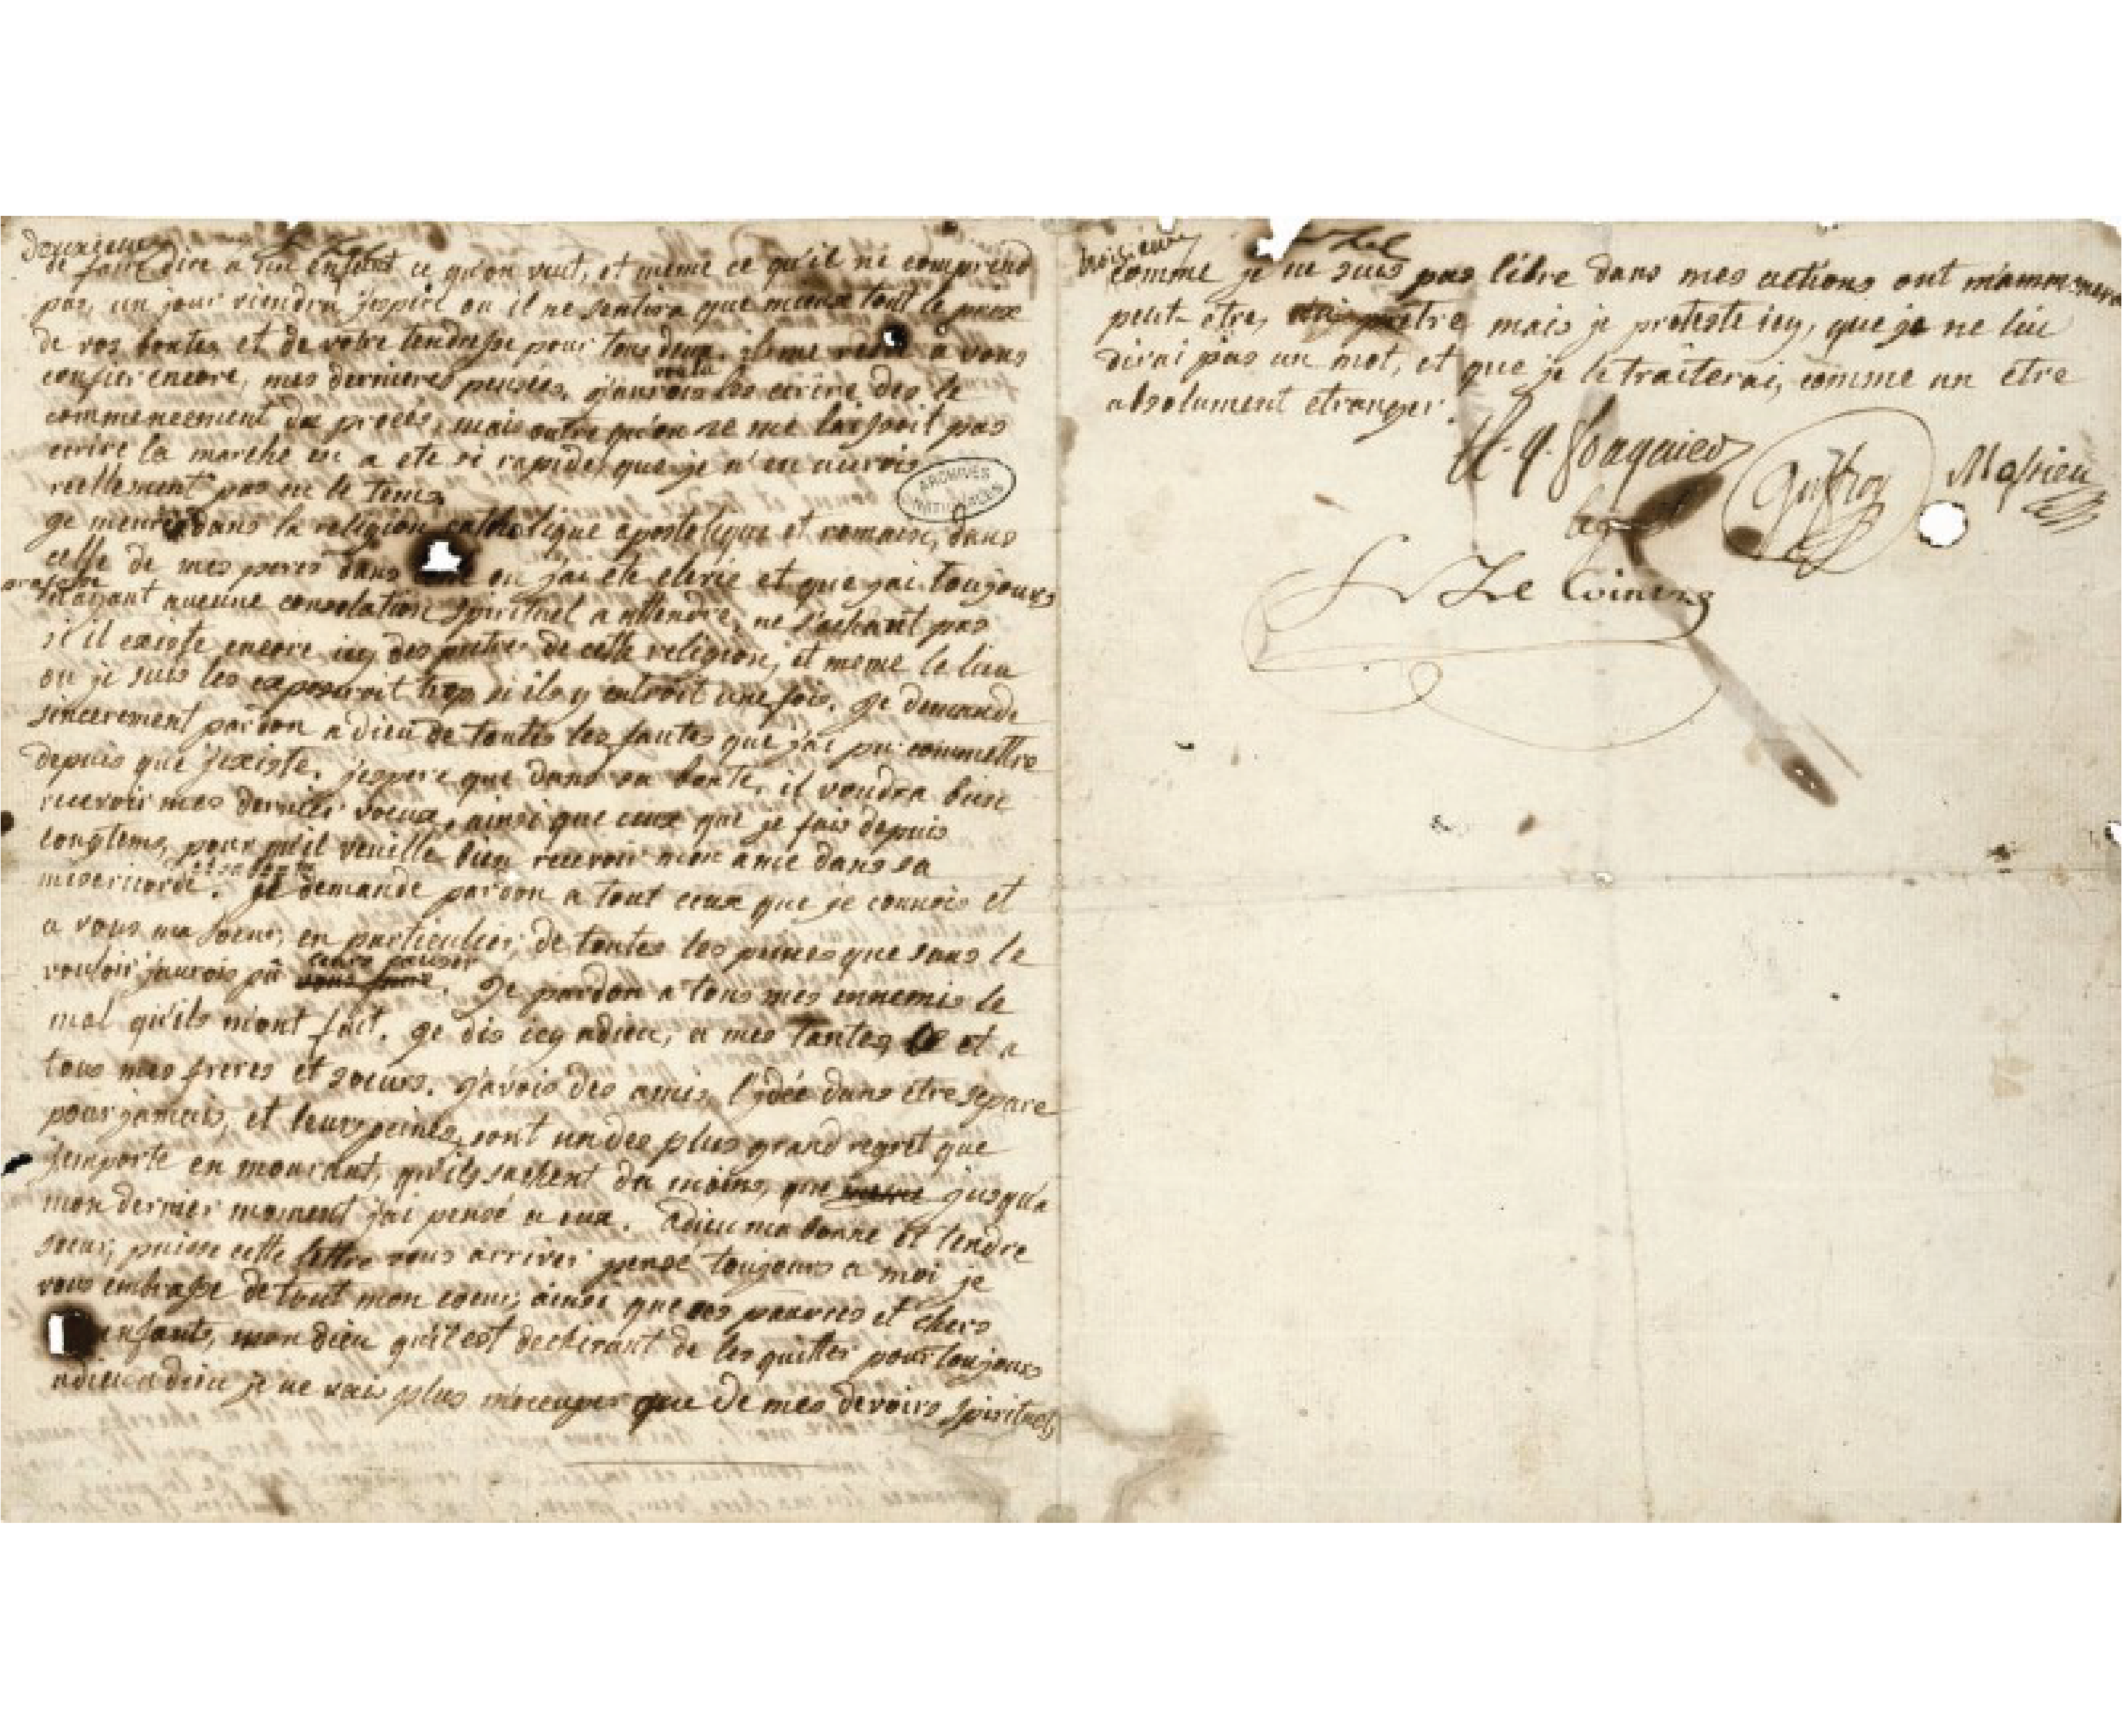 deuxieme
de faire dire a un enfant ce qu'on veut, et même ce qu'il ne comprend
pas, un jour viendra j'espere ou il ne sentira que mieux tout le prix
de vos bontes et de votre tendresse pour tous deux. il me reste a vous
confier encore, mes dernieres pensées, j'aurois voulu les ecrire des le
commencement du proces, mais outre qu'on ne me laissoit pas
ecrire la marche en a ete si rapide, que je n'en aurois
reellement pas eu le tems.
ARCHIVES NATIONALES
je meures dans la religion catholique apostolique et romaine, dans
celle de mes peres dans ou j'ai ete elevée et que j'ai toujours
professée
n'ayant aucune consolation spirituel a attendre, ne sachant pas
si il existe encore icy des pretres de cette religion, et meme le lieu
ou je suis les exposeroit trop si ils y entroit une fois. je demande
sincerement pardon a dieu de toutes les fautes que j'ai pu commettre
depuis que j'existe. j'espere que dans sa bonté, il voudra bien
recevoir mes derniers voeux, ainsi que ceux que je fais depuis
longtems, pour qu'il veuille bien recevoir mon ame dans sa
misericorde et sa bonté. je demande pardon a tout ceux que je connois et
a vous ma soeur, en particulier, de toutes les peines que sans le
vouloir j'aurois pû leurs causer. je pardon a tous mes ennemis le
mal qu'ils m'ont fait. je dis icy adieu, a mes tantes et a
tous mes freres et soeurs. j'avois des amis, l'ydée d'ans etre separé
pour jamais, et leurs peines, sont un des plus grand regret que
j'emporte en mourant, qu'ils sachent du moins, que jusqu'a
mon dernier moment j'ai pensé a eux. adieu ma bonne et tendre
soeur, puisse cette lettre vous arriver pensé toujours a moi je
vous embrasse de tout mon coeur, ainsi que ces pauvres et chers
enfants, mon dieu qu'il est dechirant de les quitter pour toujours
adieu adieu je ne vais plus m'occuper que de mes devoirs spirituel,
troisieme
comme je ne suis pas libre dans mes actions ont m'ammenera
peut-etre, pretre mais je proteste icy, que je ne lui
dirai pas un mot, et que je le traiterai, comme un etre
absolument etranger.
A. Q. Fouquier
Guffroy
Massieu
Legot
L. Le Cointre